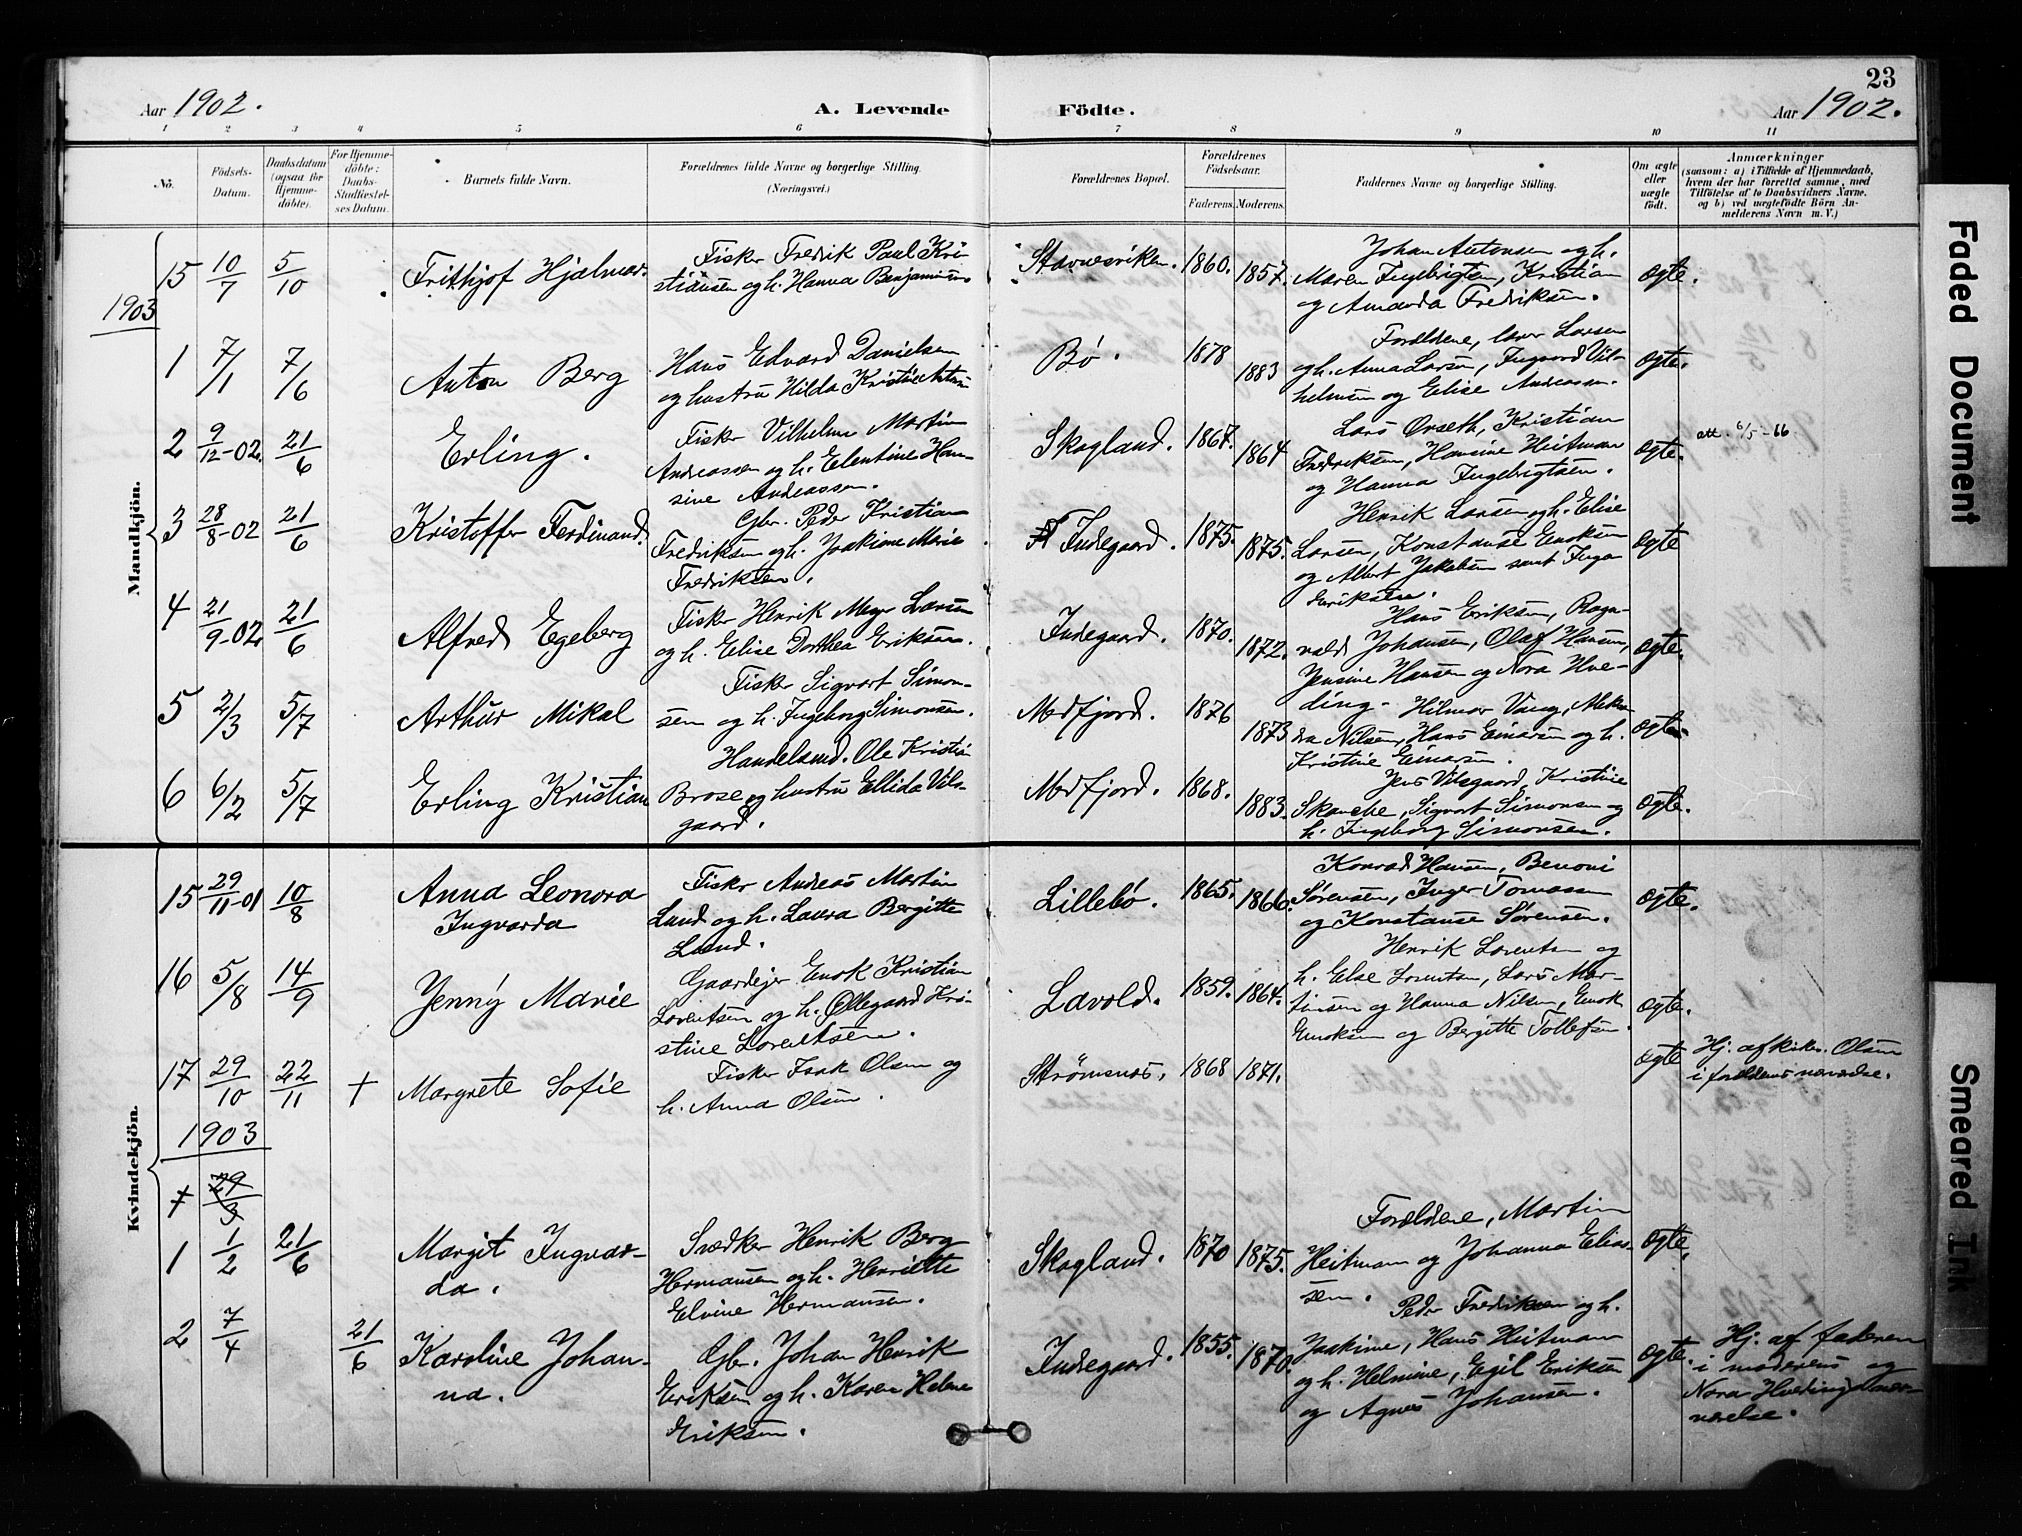 23
Aar 1902.
A. Levende Födte.
Aar 1902.
1 2 3 4 5 6 7 8 9 10 11
No.
Födsels-Datum.
Daabsdatum (ogsaa for Hjemme-döbte).
For Hjemme-döbte: Daabs-Stadfæstel-ses Datum.
Barnets fulde Navn.
Forældrenes fulde Navne og borgerlige Stilling.
(Næringsvei.)
Forældrenes Bopæl.
Forældrenes Födselsaar.
Faderens. Moderens.
Faddernes Navne og borgerlige Stilling.
Om ægte eller uægte födt.
Anmærkninger
(saasom: a) i Tilfælde af Hjemmedaab,
hvem der har forrettet samme, med
Tilföielse af to Daabsvidners Navne.
og b) ved uægtefödte Börn An-
melderens Navn m. V.)
Mandkjön.
15 10/7 5/10 Frithjof Hjalmar.
Fisker Fredrik Paul Kri-
stiansen og h. Hanna Benjaminsen
Stavnesviken. 1860. 1857.
Johan Antonsen og h.
Maren Ingebrigtsen, Kristian
og Amanda Fredriksen.
ægte.
1903
1 7/1 7/6 Anton Berg
Hans Edvard Danielsen
og hustru Hilda Kristine
Bø. 1878 1883
Forældrene, Larsen
og h. Anna Larsen, Ingvard Vil-
helmsen og Elise Andreassen.
ægte.
2 9/12-02. 21/6 Erling.
Fisker Vilhelm Martin
Andreassen og h. Elentine Han-
sine Andreassen.
Skogland. 1867. 1864
Lars Ørseth, Kristian
Fredriksen, Hansine Heitman
og Hanna Ingebrigtsen.
ægte.
6/5-66
3 28/8-02 21/6 Kristoffer Ferdinand.
Gbr. Peder Kristian
Fredriksen og h. Joakime Marie
Fredriksen.
Indegaard. 1875. 1875.
Henrik Larsen og h. Elise
Larsen, Konstanse Enoksen
og Albert Jakobsen samt Inga
Eriksen.
ægte
4 21/9-02 21/6 Alfred Egeberg
Fisker Henrik Meyer Larsen
og h. Elise Dorthea Eriksen.
Indegaard. 1870. 1872.
Hans Eriksen, Ragn-
vald Johansen, Olaf Hansen,
Jensine Hansen og Nora Hve-
ding.
ægte.
5 2/3 5/7 Arthur Mikal
Fisker Sigvart Simon-
sen og h. Ingeborg Simonsen.
Medfjord. 1876 1873
Hilmar Vang,
Nilsen, Hans Einarsen og h.
Kristine Einarsen.
ægte
6 6/2 5/7 Erling Kristian
Handelsmd. Ole Kristian
Brose og hustru Ellida Vils-
gaard.
Medfjord. 1868. 1883.
Jens Vilsgaard, Kristine
Skanche, Sigvart Simonsen og
h. Ingeborg Simonsen.
ægte.
Kvindekjön.
15 29/11-01 10/8 Anna Leonora
Ingvarda
Fisker Andreas Martin
Lund og h. Laura Bergitte
Lund.
Lillebø. 1865. 1866.
Konrad Hansen, Benoni
Sørensen, Inger Tomassen
og Konstanse Sørensen.
ægte.
16 5/8 14/9 Jenny Marie
Gaardejer Enok Kristian
Lorentsen og h. Øllegaard Kri-
stine Lorentsen.
Lavold. 1859. 1864.
Henrik Lorentsen og
h. Else Lorentsen, Lars Mar-
tinsen og Hanna Nilsen, Enok
Enoksen og Bergitte Tollefsen.
ægte.
17 29/10 22/11 + Margrete Sofie
Fisker Isak Olsen og
h. Anna Olsen.
Strømsnes. 1868 1871.
ægte
Hj. af Olsen
i forældrens nærværelse.
1903
+ 29/3
1 1/2 21/6 Margit Ingvar-
da.
Snedker Henrik Berg
Hermansen og h. Henriette
Elvine Hermansen.
Skogland. 1870 1875.
Forældrene, Martin
Heitman og Johanna Elias-
sen.
ægte.
2 7/4 21/6 Karoline Johan-
na.
Gbr. Johan Henrik
Eriksen og h. Karen Helene
Eriksen.
Indegaard. 1855. 1870.
Peder Fredriksen og h.
Joakime, Hans Heitmann
og h. Helmine, Egil Eriksen
og Agnes Johansen.
ægte.
Hj. af faderen
i moderens og
Nora Hvedings nær-
værelse.
Faded Document
Smeared Ink